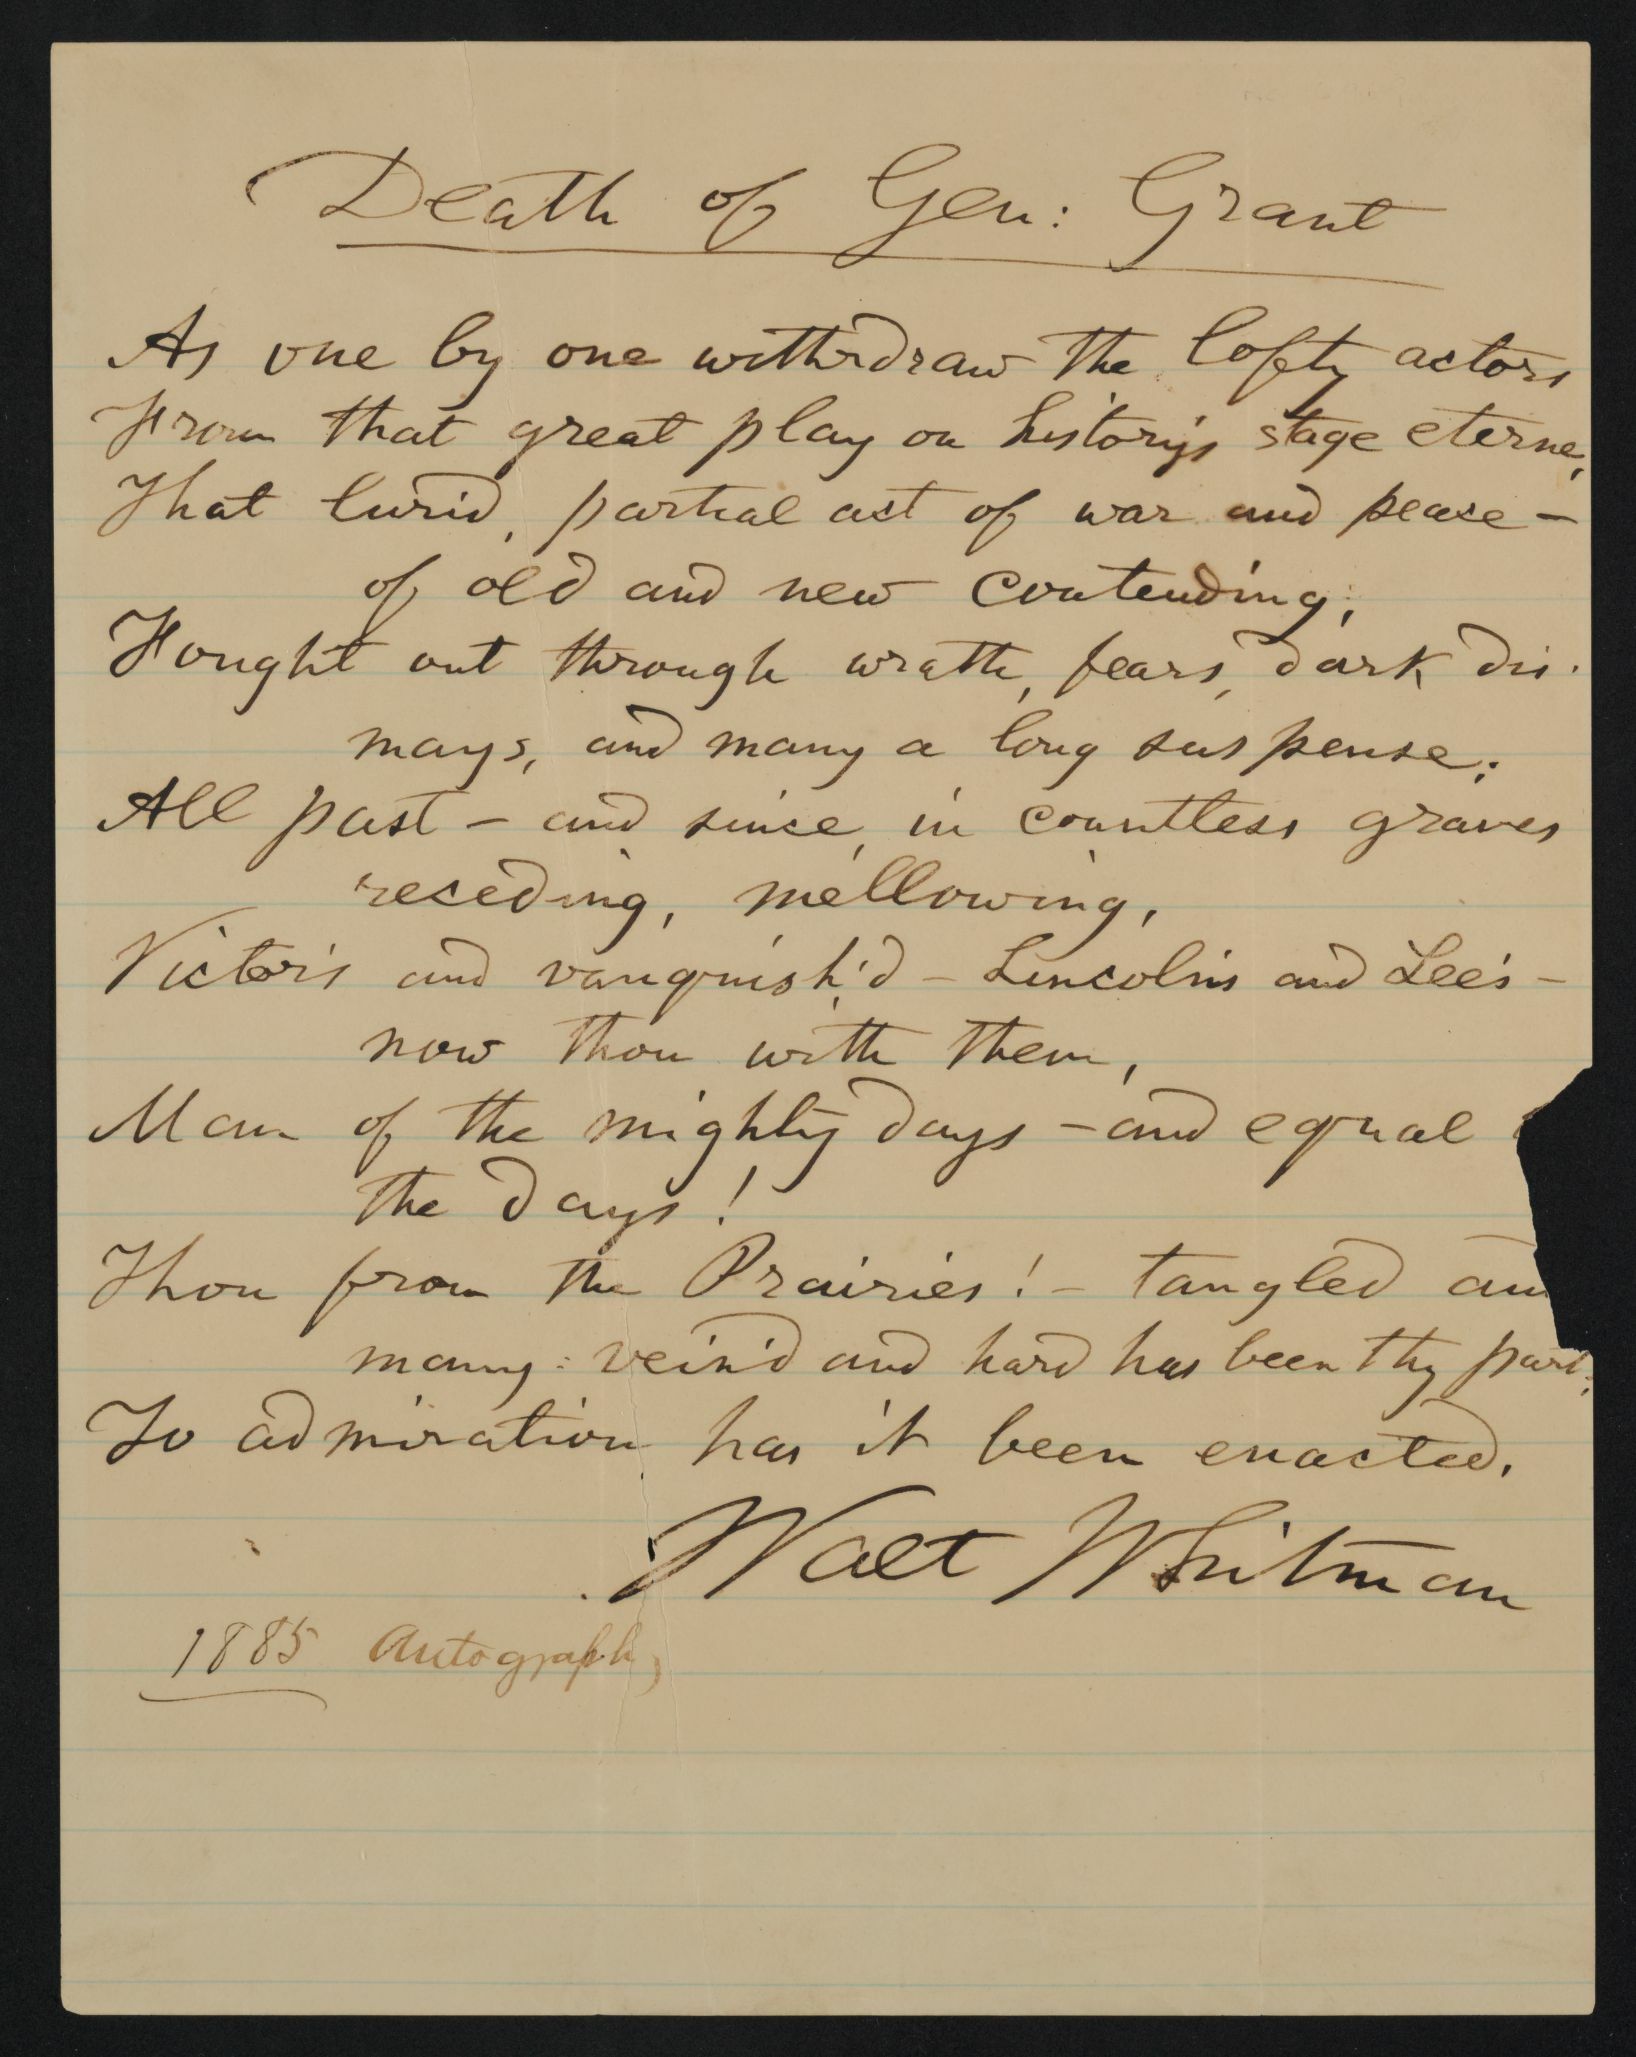 Death of Gen: Grant
As one by one withdraw the lofty actors
From that great play on history's stage eterne,
That lurid, partial act of war and peace —
of old and new contending,
Fought out through wrath, fears, dark dis-
mays, and many a long suspense;
All past — and since, in countless graves
receding, mellowing,
Victor's and vanquish'd — Lincoln's and Lee's —
now thou with them,
Man of the mighty days — and equal
the days!
Thou from the Prairies! — tangled
many-vein'd and hard has been thy part,
To admiration has it been enacted.
Walt Whitman
1885 Autograph,